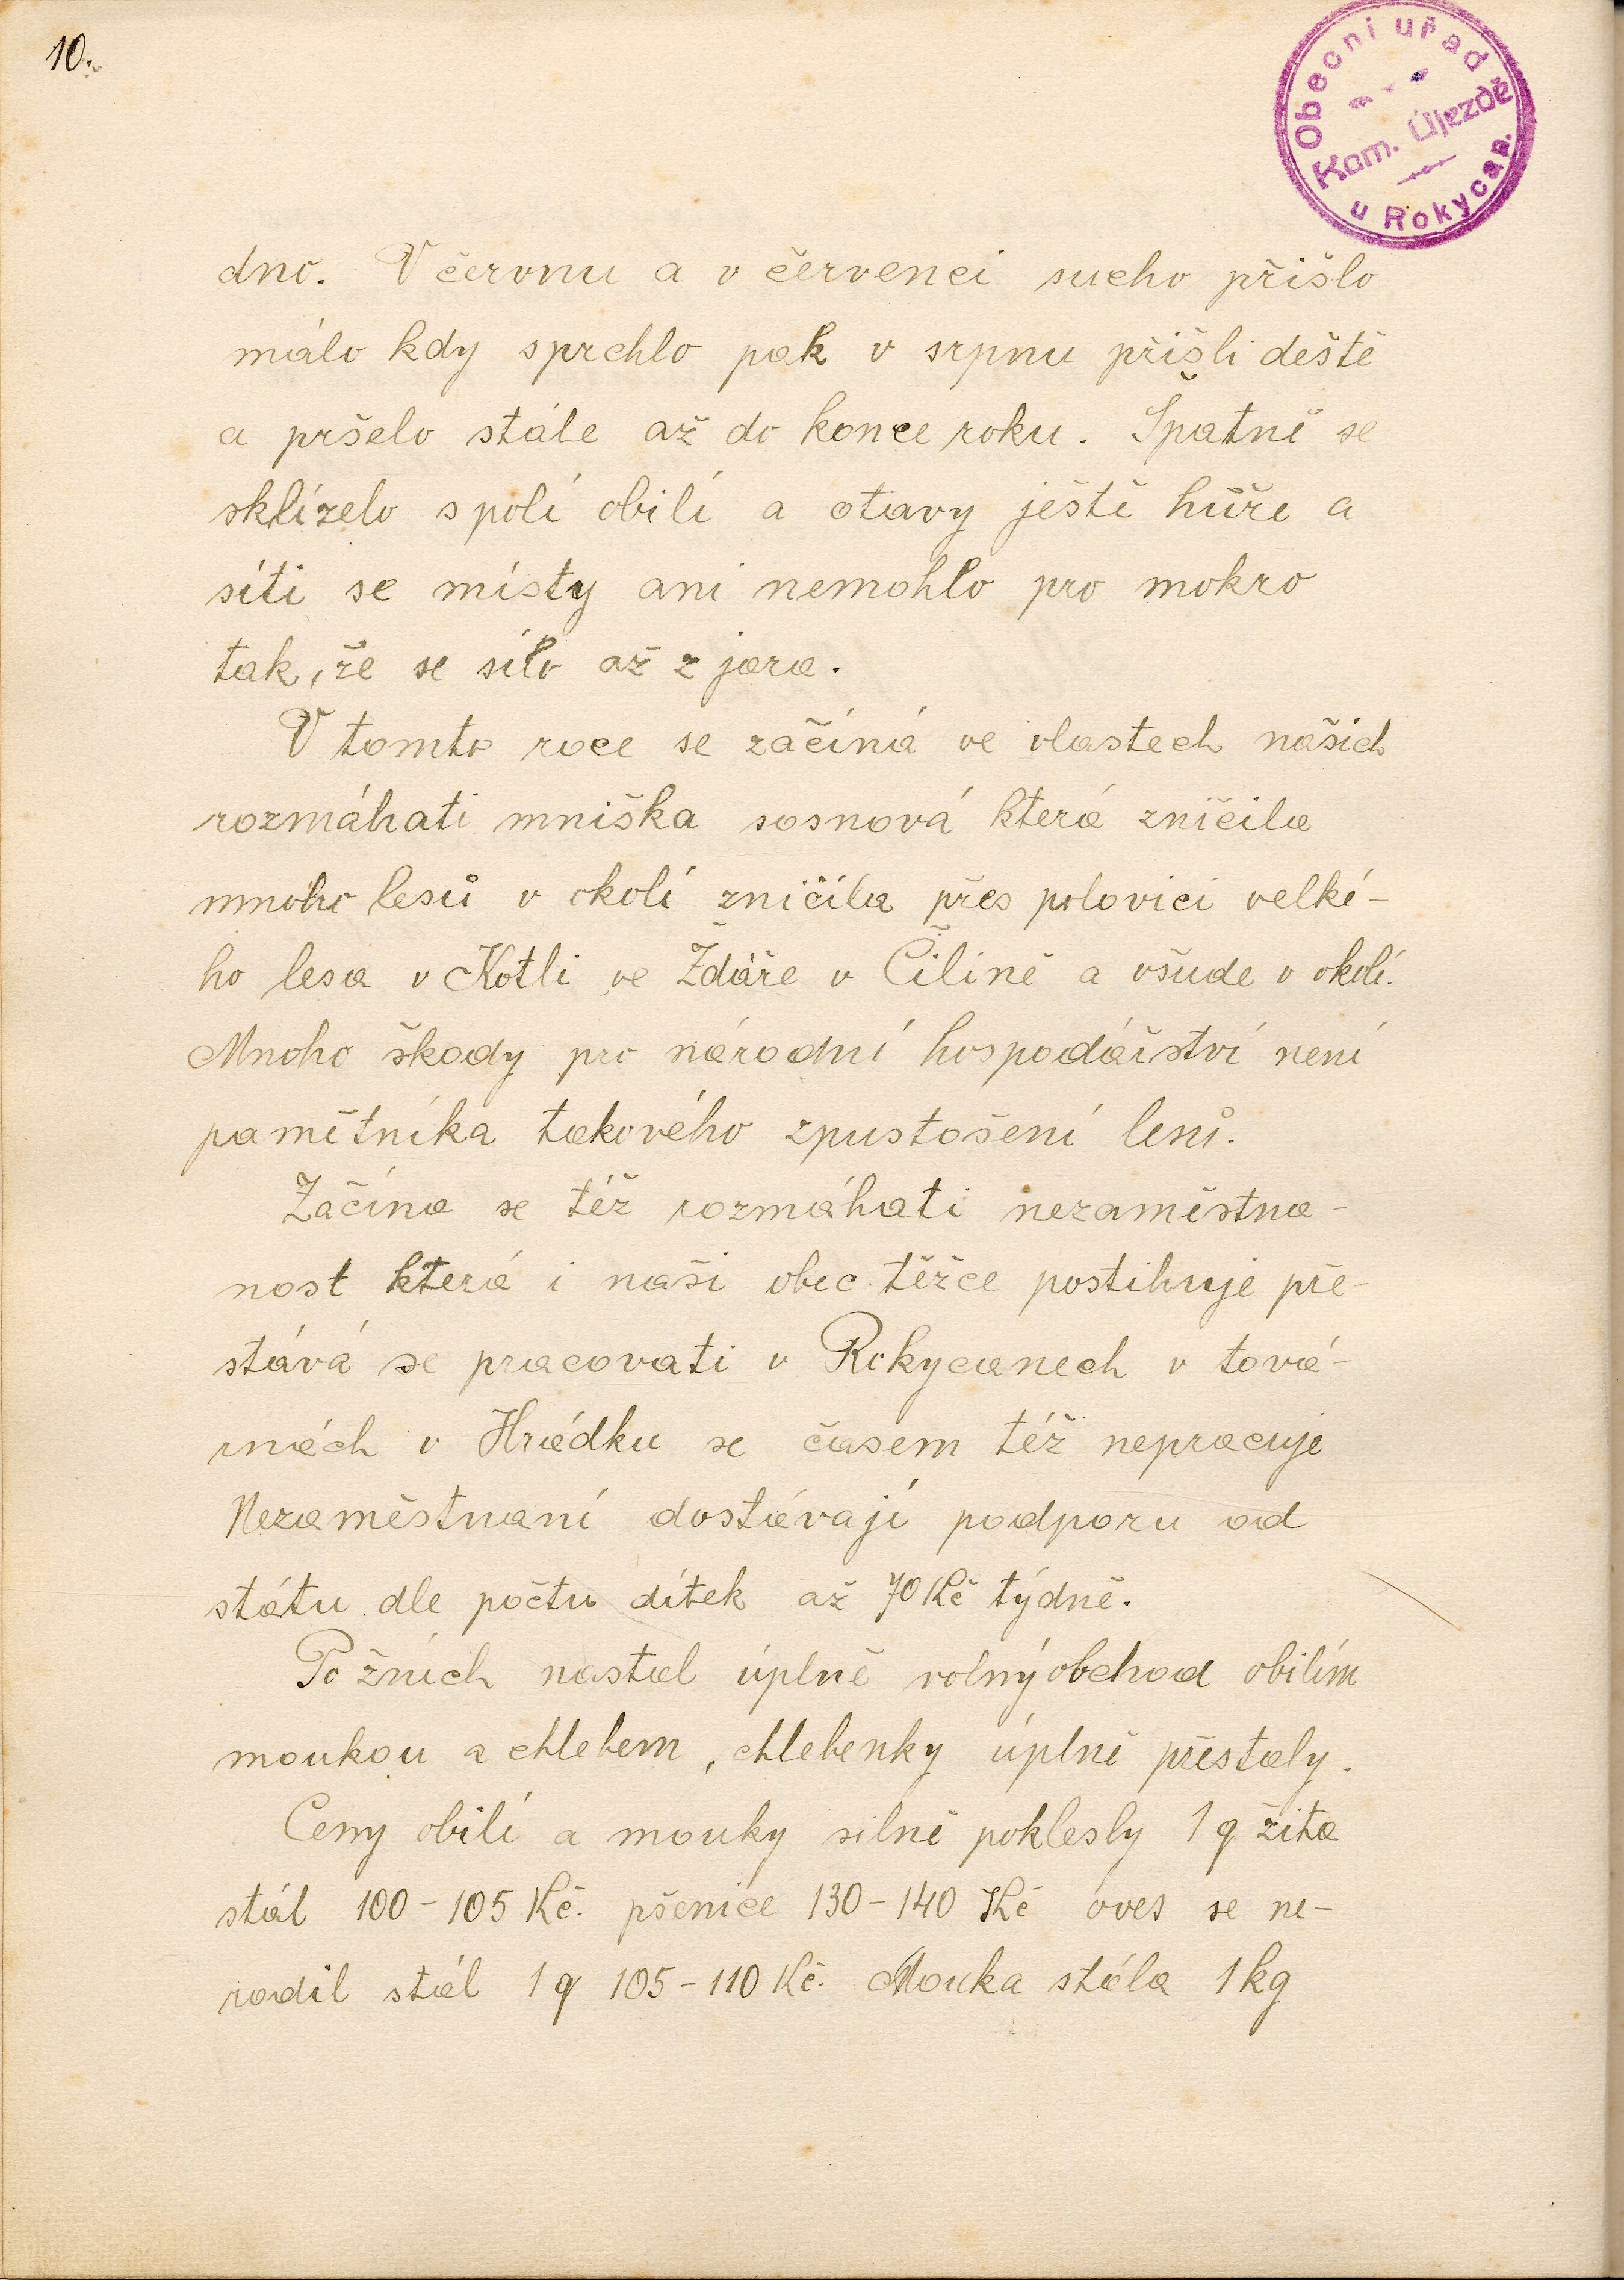 10.
Obecní uřad
Kam. Újezdě
u Rokycan.
dno. V červnu a v červenci sucho přišlo
málo kdy sprchlo pak v srpnu přišli deště
a pršelo stále až do konce roku. Špatně se
sklízelo s polí obilí a otavy ještě hůře a
síti se místy ani nemohlo pro mokro
tak, že se sílo až z jara.
V tomto roce se začíná ve vlastech našich
rozmáhati mniška sosnová která zničila
mnoho lesů v okolí zničila přes polovici velké-
ho lesa v Kotli ve Žďáře v Čilině a všude v okolí.
Mnoho škody pro národní hospodářství není
pamětníka takového zpustošení lesů.
Začíná se též rozmáhati nezaměstna-
nost která i naši obec těžce postihuje pře-
stává se pracovati v Rokycanech v tová-
rnách v Hrádku se časem též nepracuje
Nezaměstnaní dostávají podporu od
státu dle počtu dítek až 70 Kč týdně.
Po žních nastal úplně volný obchod obilím
moukou a chlebem, chlebenky úplně přestaly.
Ceny obilí a mouky silně poklesly 1 q žita
stál 100-105 Kč. pšenice 130-140 Kč oves se ne-
rodil stál 1 q 105-110 Kč. Mouka stála 1 kg